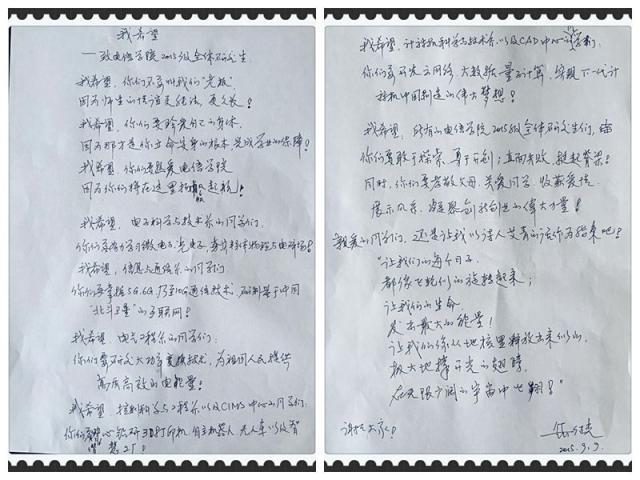 我希望
——致电信学院2015级全体研究生
我希望,你们不要叫我们"老板"
因为师生的情谊更纯洁、更久长!
我希望,你们要珍爱自己的身体,
因为那才是你立命安身的根本,完成学业的保障!
我希望,你们要热爱电信学院
因为你们将在这里扬帆起航!
我希望,电子科学与技术系的同学们,
你们要学习微电子、光电子、凝聚态物理与电磁场!
我希望,信息与通信系的同学们,
你们要掌握5G、6G乃至10G通信技术,研制基于中国
"北斗卫星"的互联网!
我希望,电气工程系的同学们:
你们要研究大功率变换技术,为祖国人民提供
高质高效的电能量!
我希望,控制科学与工程系以及CIMS中心的同学们:
你们要钻研3D打印机、自主机器人、无人车以及智
慧工厂!
我希望,计算机科学与技术系以及CAD中心的同学们,
你们要研究云网络、大数据、量子计算,实现下一代计
算机中国制造的伟大梦想!
我希望,所有的电信学院2015级全体研究生们,
你们要敢于探索,勇于创新;直面失败,挺起脊梁!
同时,你们要孝敬父母,关爱同学,收获爱情,
展示风采,凝聚创新创造的伟大力量!
亲爱的同学们,还是让我以诗人艾青的诗作为结束吧!
"让我们的每个日子
都像飞轮似的旋转起来;
让我们的生命
发出最大的能量!
让我们像从地核里释放出来似的,
极大地撑开光的翅膀
在无限广阔的宇宙中飞翔!"
谢谢大家!
2015.9.9.